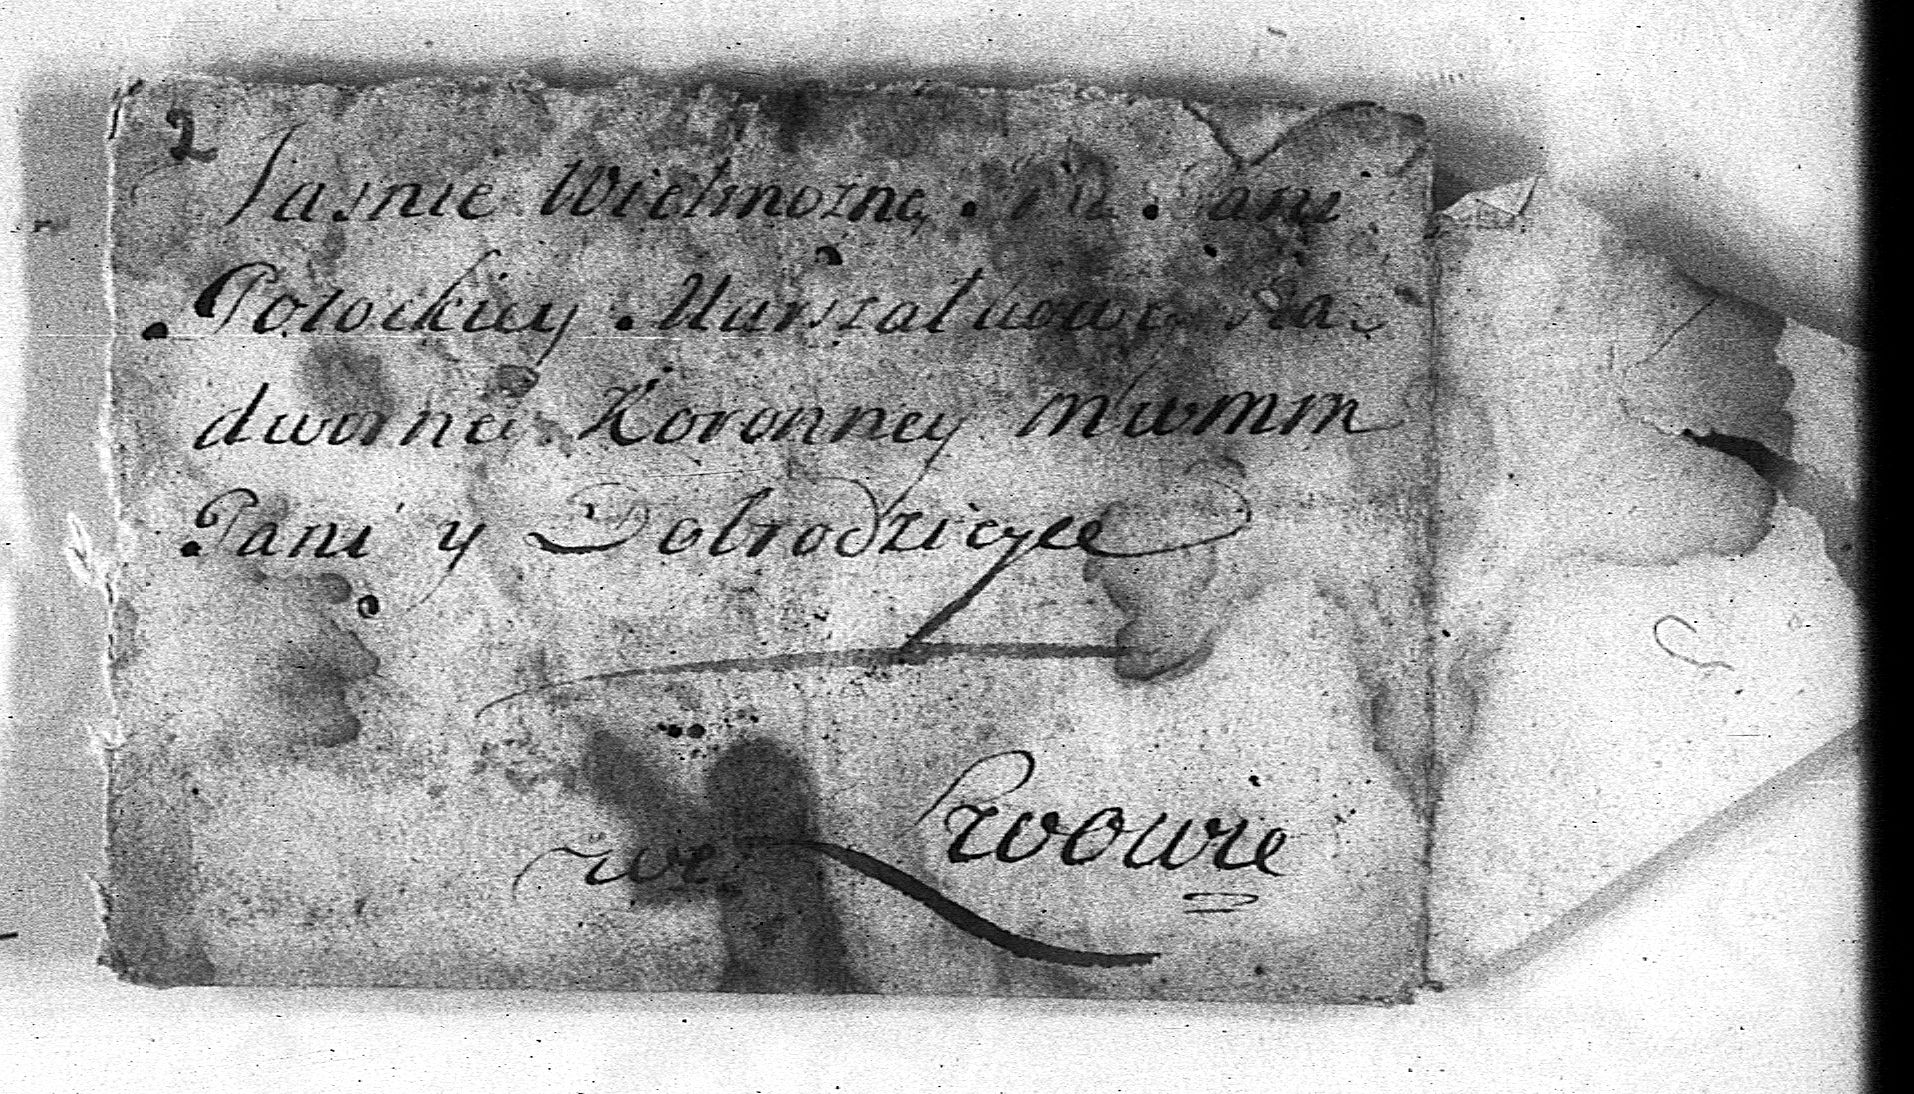 2
Jasnie Wielmozney Pani
Potockiey Marszałkowey Na=
dworney Koronney mwmm
Pani y Dobrodzieyce
we Lwowie